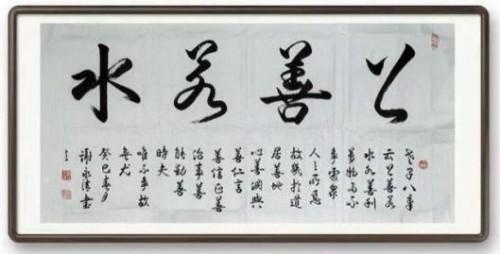 上善若水
老子八章
云上善若
水水善利
萬物而不
争處衆
人之所惡
故幾於道
居善地
心善渊與
善仁言
善信正善
治事善
能動善
時夫
唯不争故
無尤
癸巳春月